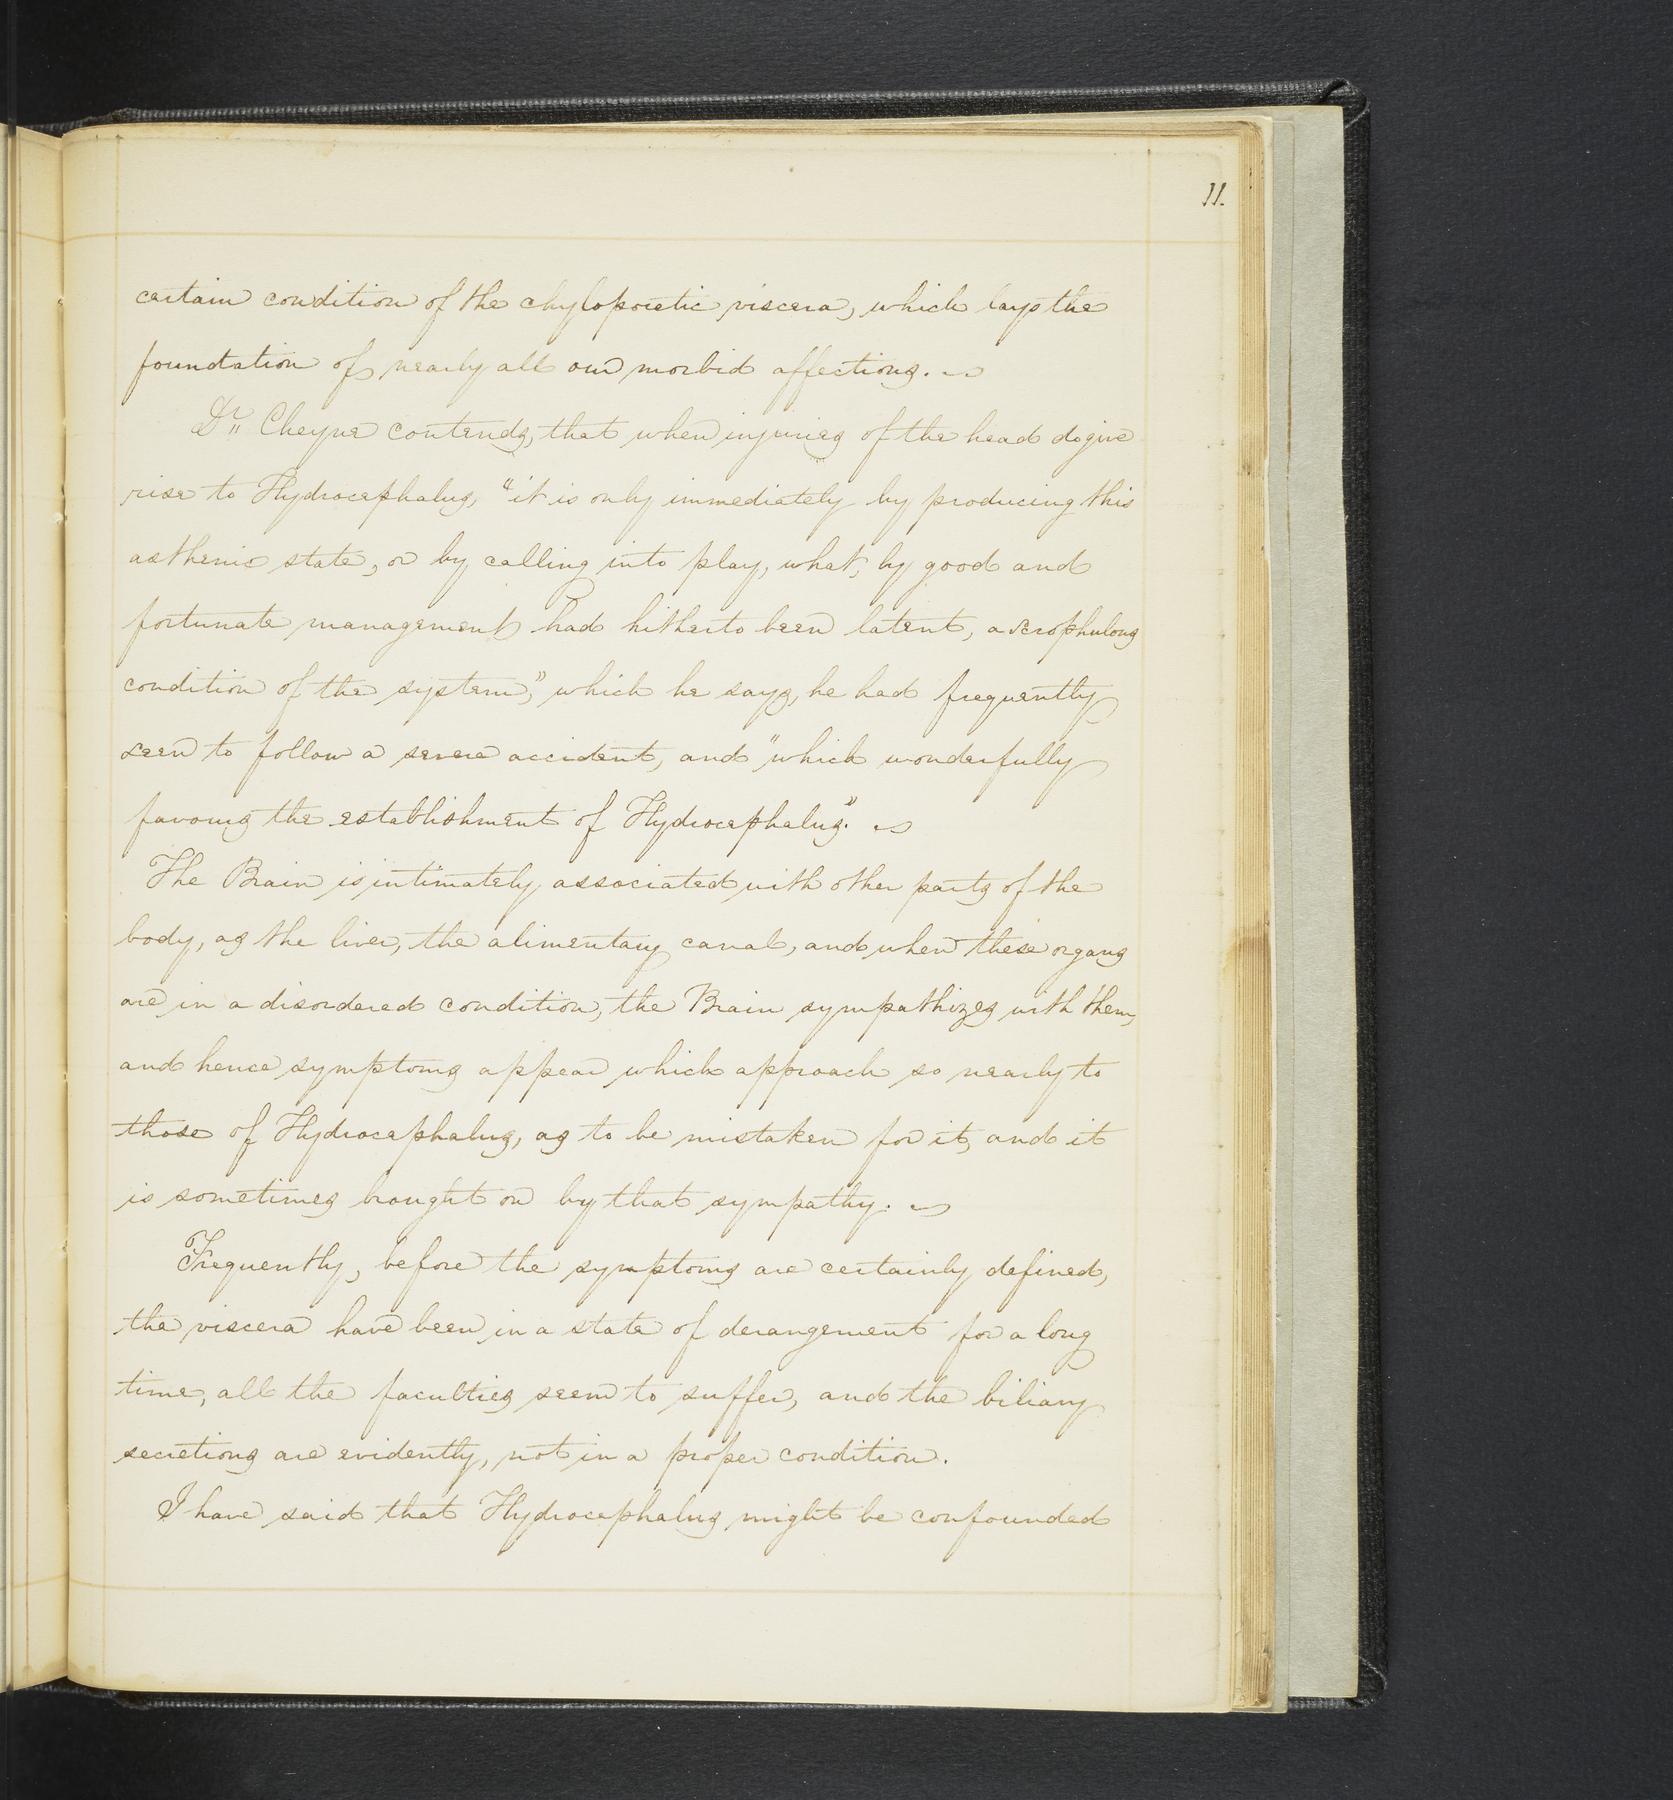 11.
certain condition of the chylopoietic viscera, which lays the
foundation of nearly all our morbid affections.
Dr. Cheyne contends, that when injuries of the head do give
rise to Hydrocephalus, "it is only immediately" by producing this
asthenic state, or by calling into play, what, by good and
fortunate management had hitherto been latent, a scrophulous
condition of the system," which he says, he had frequently
seen to follow a severe accident, and "which wonderfully
favours the establishment of Hydrocephalus."
The Brain is intimately associated with other parts of the
body, as the liver, the alimentary canal, and when these organs
are in a disordered condition, the Brain sympathizes with them,
and hence symptoms appear which approach so nearly to
those of Hydrocephalus, as to be mistaken for it, and it
is sometimes brought on by that sympathy.
Frequently, before the symptoms are certainly defined,
the viscera have been in a state of derangement for a long
time, all the faculties seem to suffer, and the biliary
secretions are evidently, not in a proper condition.
I have said that Hydrocephalus might be confounded